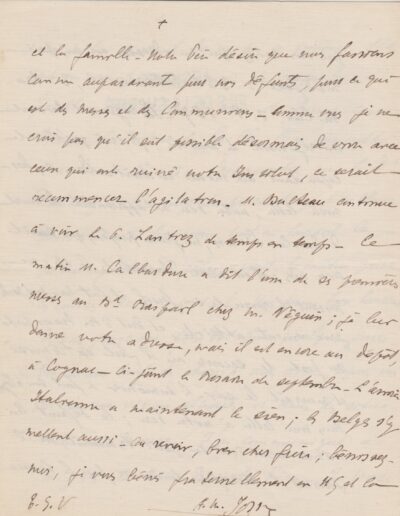 +
et la famille - Notre Père désire que nous fassions
comme auparavant pour nos défunts, pour ce qui
est des messes et des Communions - Comme vous je ne
crois pas qu'il soit possible désormais de vivre avec
ceux qui ont ruiné notre Institut, ce serait
recommencer l'agitation. M. Bulteau continue
à voir le P. Lantrez de temps en temps - Ce
matin M. a dit l'une de ses premières
messes au Bd Raspail chez M. Véguin ; j'ai
donné votre adresse, mais il est encore au dépôt,
à Cognac - Ci-joint le Rosaire de septembre - L'
a maintenant le sien ; les Belges s'y
mettent aussi - au revoir, bien cher frère ; bénissez-
moi, je vous bénis fraternellement en N.S. et la
T. S. V